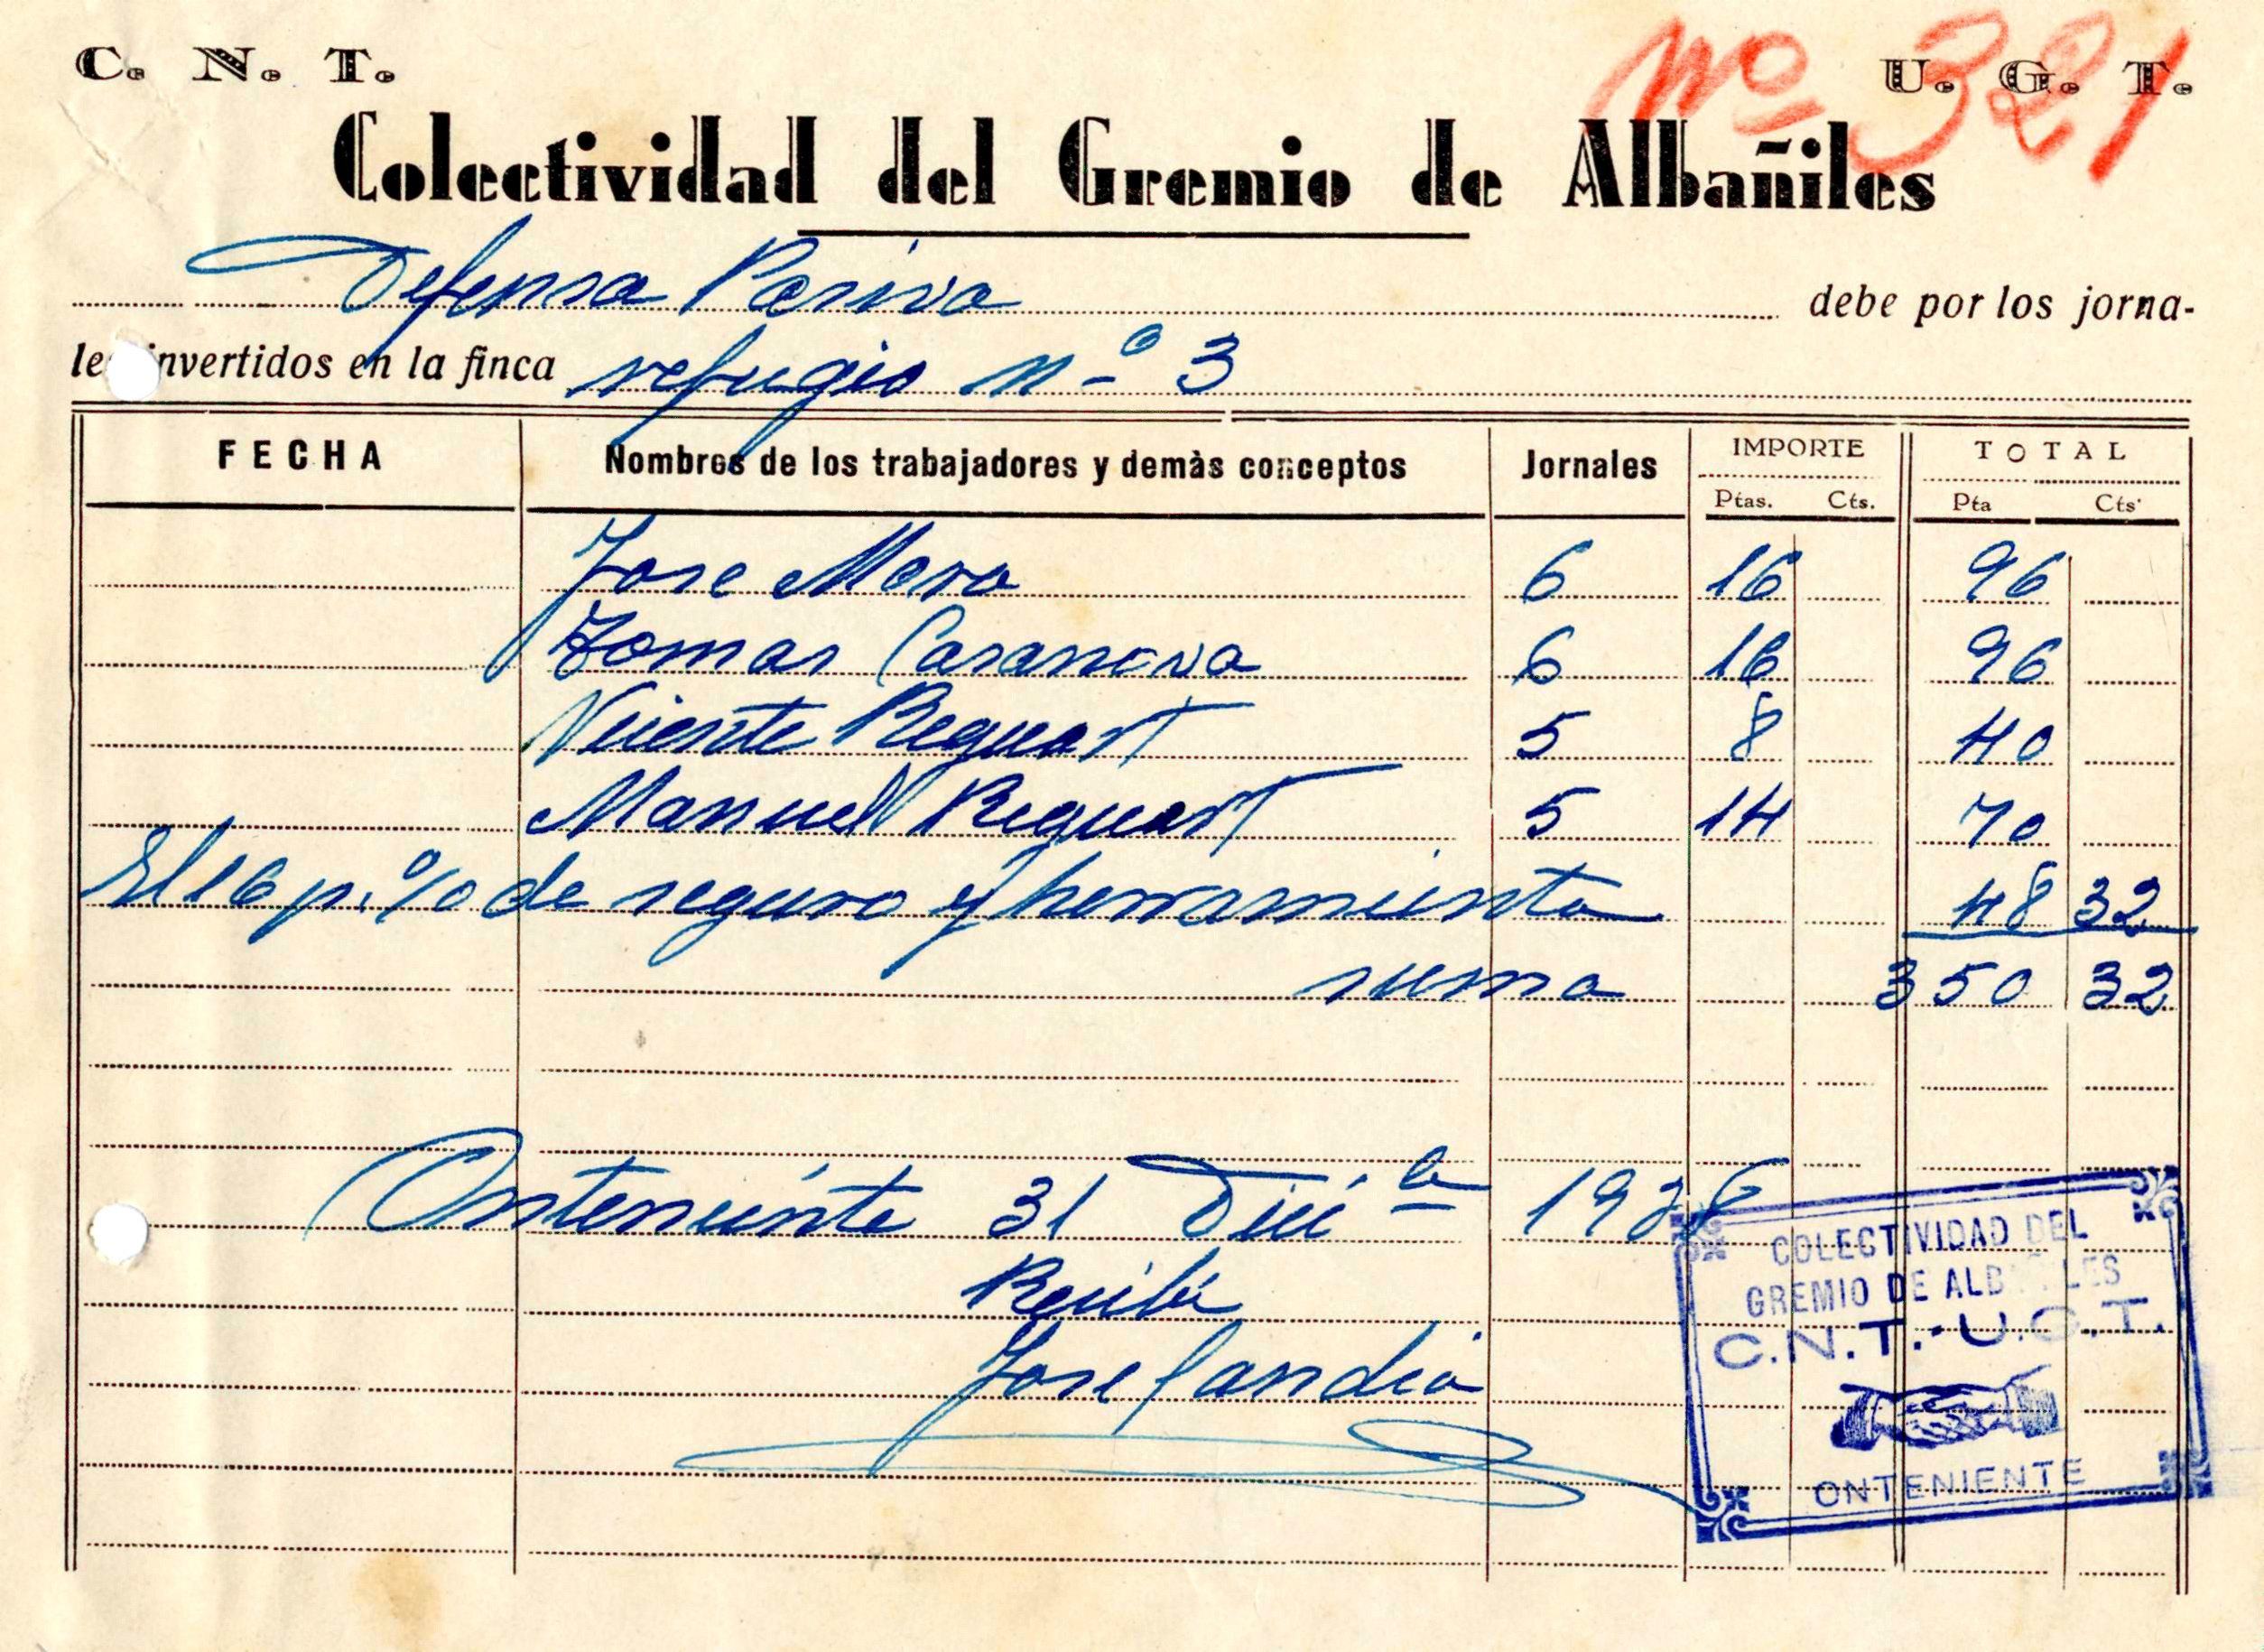 C. N. T.
U. G. T.
nº 321
Colectividad del Gremio de Albañiles
Defensa Pasiva debe por los jorna-
les invertidos en la finca refugio nº 3
FECHA Nombres de los trabajadores y demàs conceptos Jornales IMPORTE TOTAL
Ptas. Cts. Pta Cts
Jose Mora 6 16 96
Tomas Casanova 6 16 96
Vicente Reguart 5 8 40
Manuel Reguart 5 14 70
El 16 p.% de seguro y herramienta 48 32
suma 350 32
Onteniente 31 Dici
Recibí
Jose Gandia
COLECTIVIDAD DEL
GREMIO DE ALBAÑILES
C.N.T.-U.G.T.
ONTENIENTE